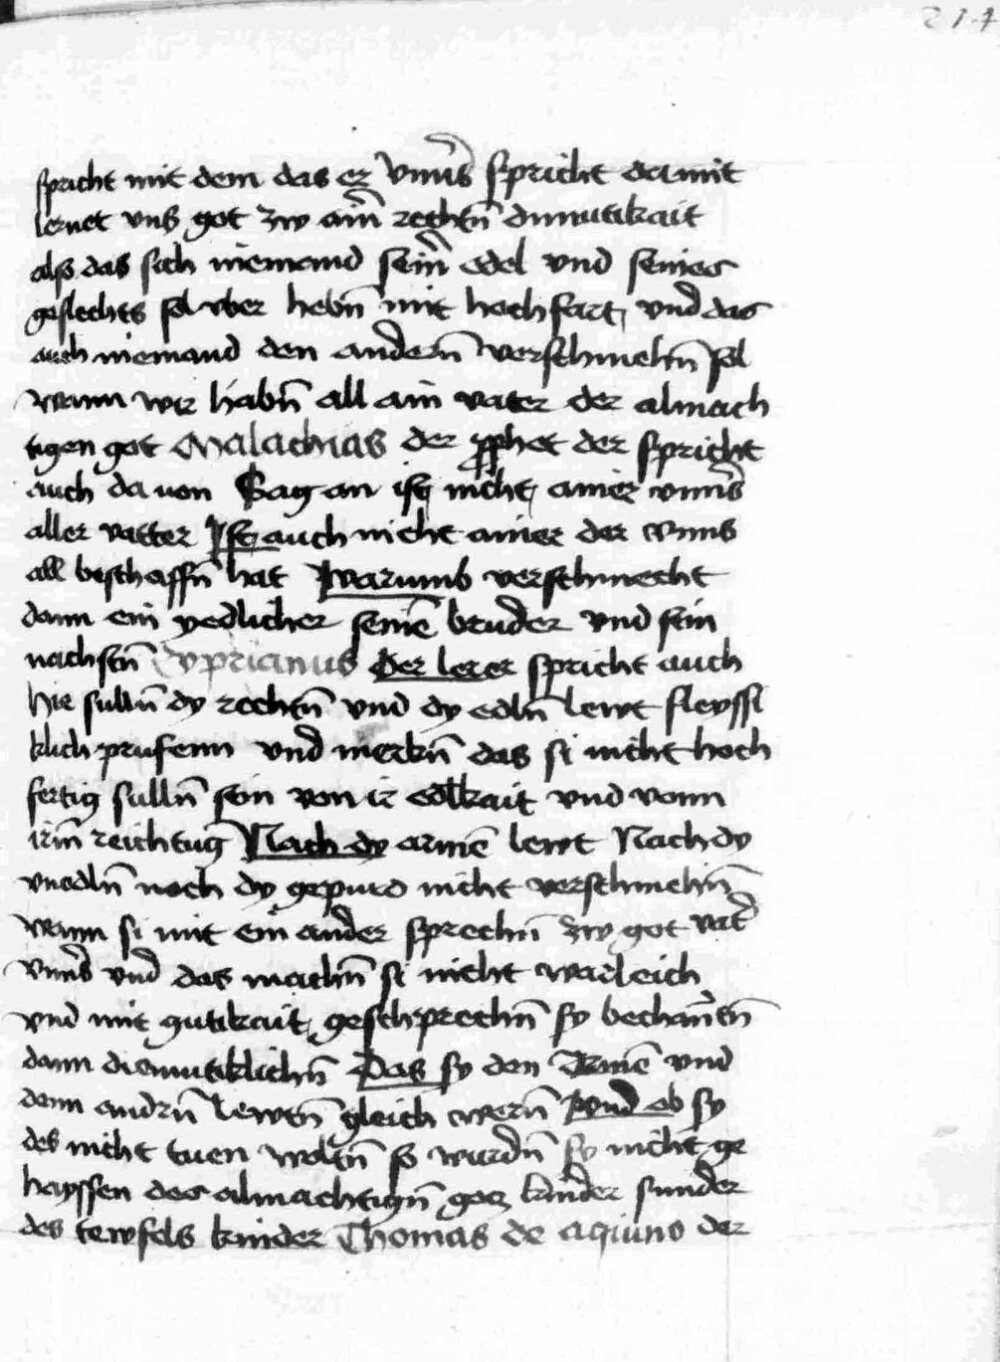 214
spricht mit dem das er vnnser spricht damit
lernet vns got zw ainer rechtn dimutikait
also das sich niemand seiner edel vnd seines
geslechts sol vber hebn mit hochfart vnd das
auch niemand den andern verschmehn sol
wann wir habn all ain vater der almach
tigen got Malachias der prophet der spricht
auch da von Sag an ist nicht ainer vnnser
aller vatter Ist auch nicht ainer der vnns
all beschaffn hat Warumb verschmecht
dann ein yedlicher seinen bruder vnd sein
nachstn Cyprianus der lerer spricht auch
hie sulln dy rechtn vnd dy edln lewt fleyssi
klich prufenn vnd merkn das si nicht hoch
fertig sulln sein von ir edlkait vnd vonn
irm reichtug Nach dy armen lewt Nach dy
vnedln noch dy gepurd nicht verschmehn
wann si mit ein ander sprechn zw got vater
vnnser vnd das machn si nicht warleich
vnd mit gutikait geschprechn sy bechanntn
dann diemutiklichn Das sy den Armen vnd
denn andern lewtn gleich wern Vnd ob sy
des nicht tuen woltn so wurdn sy nicht ge
hayssen des almachtign gotz kinder sunder
des tewfels kinder Thomas de aquino der